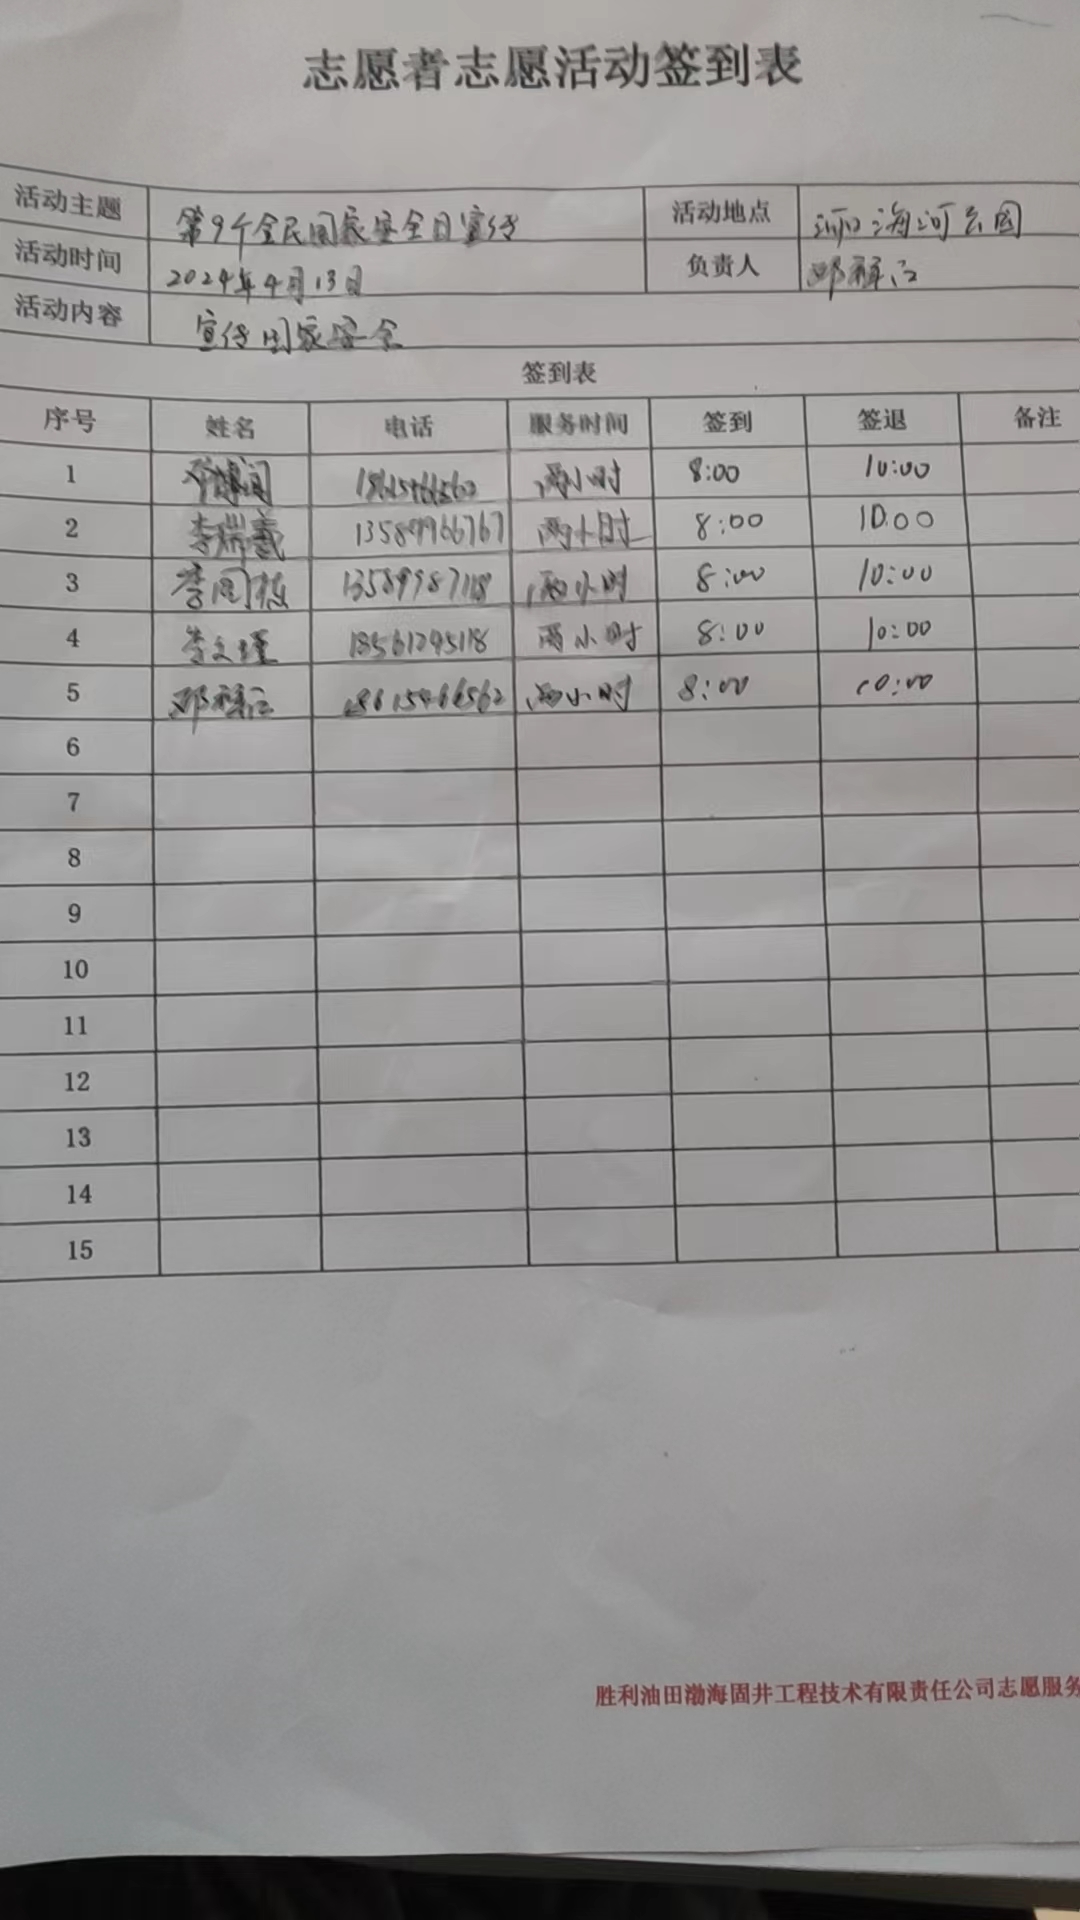 志愿者志愿活动签到表
活动主题 第9个全民国家安全日宣传 活动地点 河口海河公园
活动时间 2024年4月13日 负责人 邓
活动内容 宣传国家安全
签到表
序号 姓名 电话 服务时间 签到 签退 备注
1 两小时 8:00 10:00
2 李瑞羲 13589966767 两小时 8:00 10:00
3 李同 两小时 8:00 10:00
4 李文瑾 18561245118 两小时 8:00 10:00
5 邓 18615466562 两小时 8:00 10:00
6
7
8
9
10
11
12
13
14
15
胜利油田渤海固井工程技术有限责任公司志愿服务